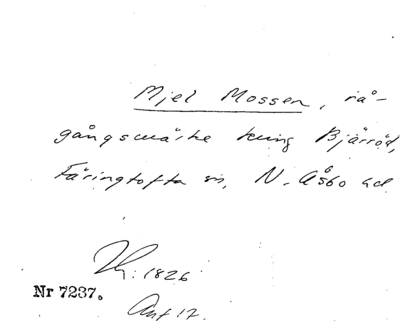 Mjel Mossen, rå-
gångsmärke kring Bjärröd,
Färingtofta sn, N. Åsbo hd
1826
Nr 7237.